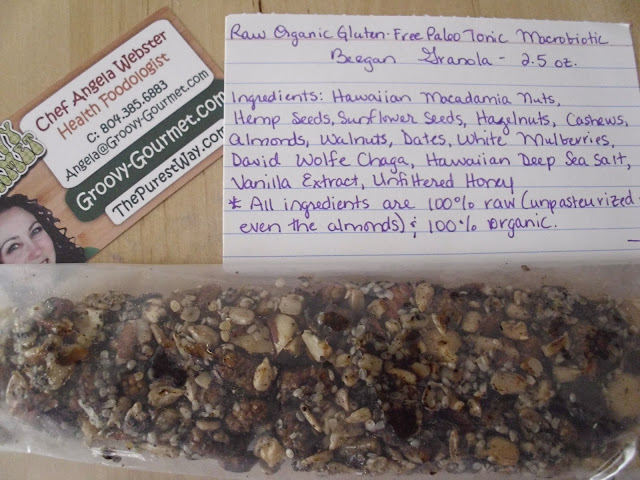 Chef Angela Webster
Health Foodologist
C: 804.385.6883
Angela@Groovy-Gourmet.com
Groovy-Gourmet.com
ThePurestWay.com
Raw Organic Gluten-Free Paleo Tonic Macrobiotic
Beegan Granola - 2.5 oz.
Ingredients: Hawaiian Macadamia Nuts,
Hemp Seeds, Sunflower Seeds, Hazelnuts, Cashews,
Almonds, Walnuts, Dates, White Mulberries,
David Wolfe Chaga, Hawaiian Deep Sea Salt,
Vanilla Extract, Unfiltered Honey
* All ingredients are 100% raw (unpasteurized -
even the almonds) & 100% organic.